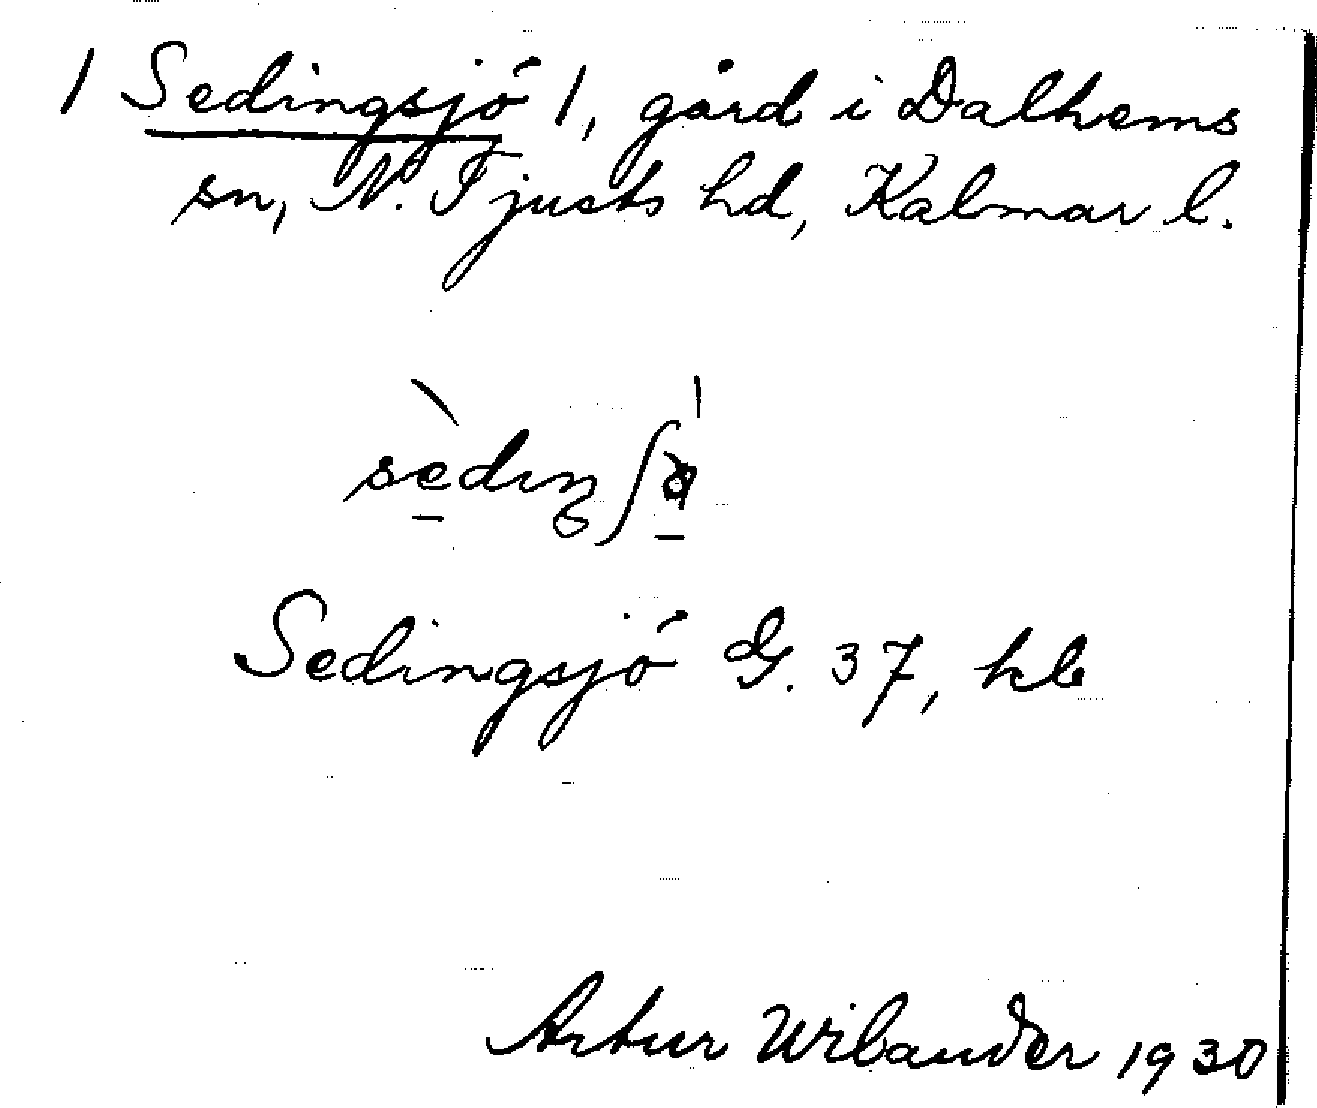 / Sedingsjö /, gård i Dalhems
sn, N. Tjusts hd, Kalmar l.
Sedingsjö G. 37, hbl
Artur Wilander 1930